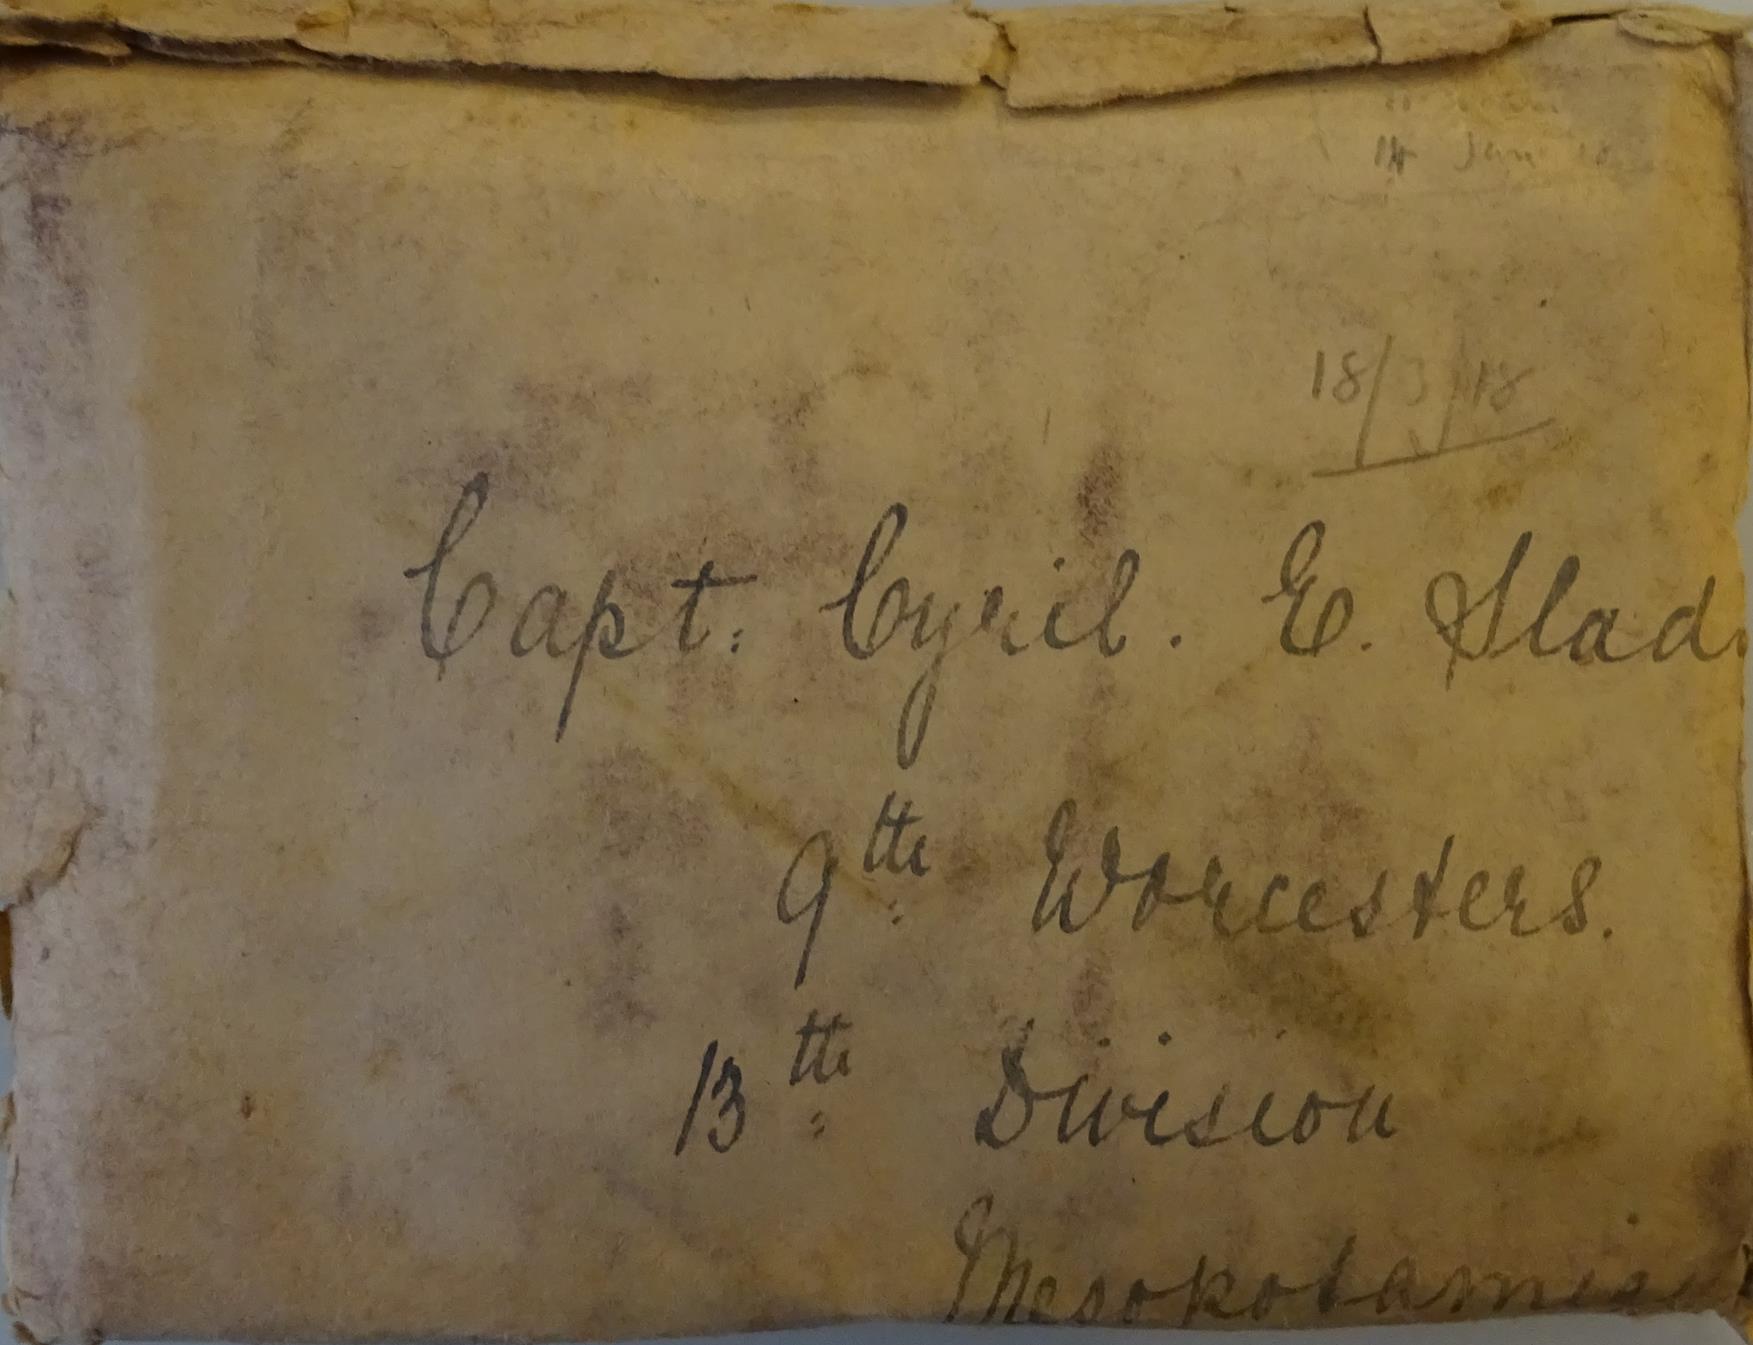 18/3/18
Capt. Cyril. E. Slad
9th Worcesters.
13th Division
Mesopotamia